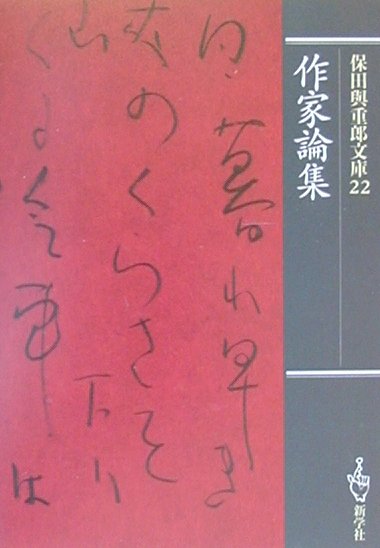 保田與重郎文庫22
作家論集
新学社
暮れ早き
のくらさを
下り